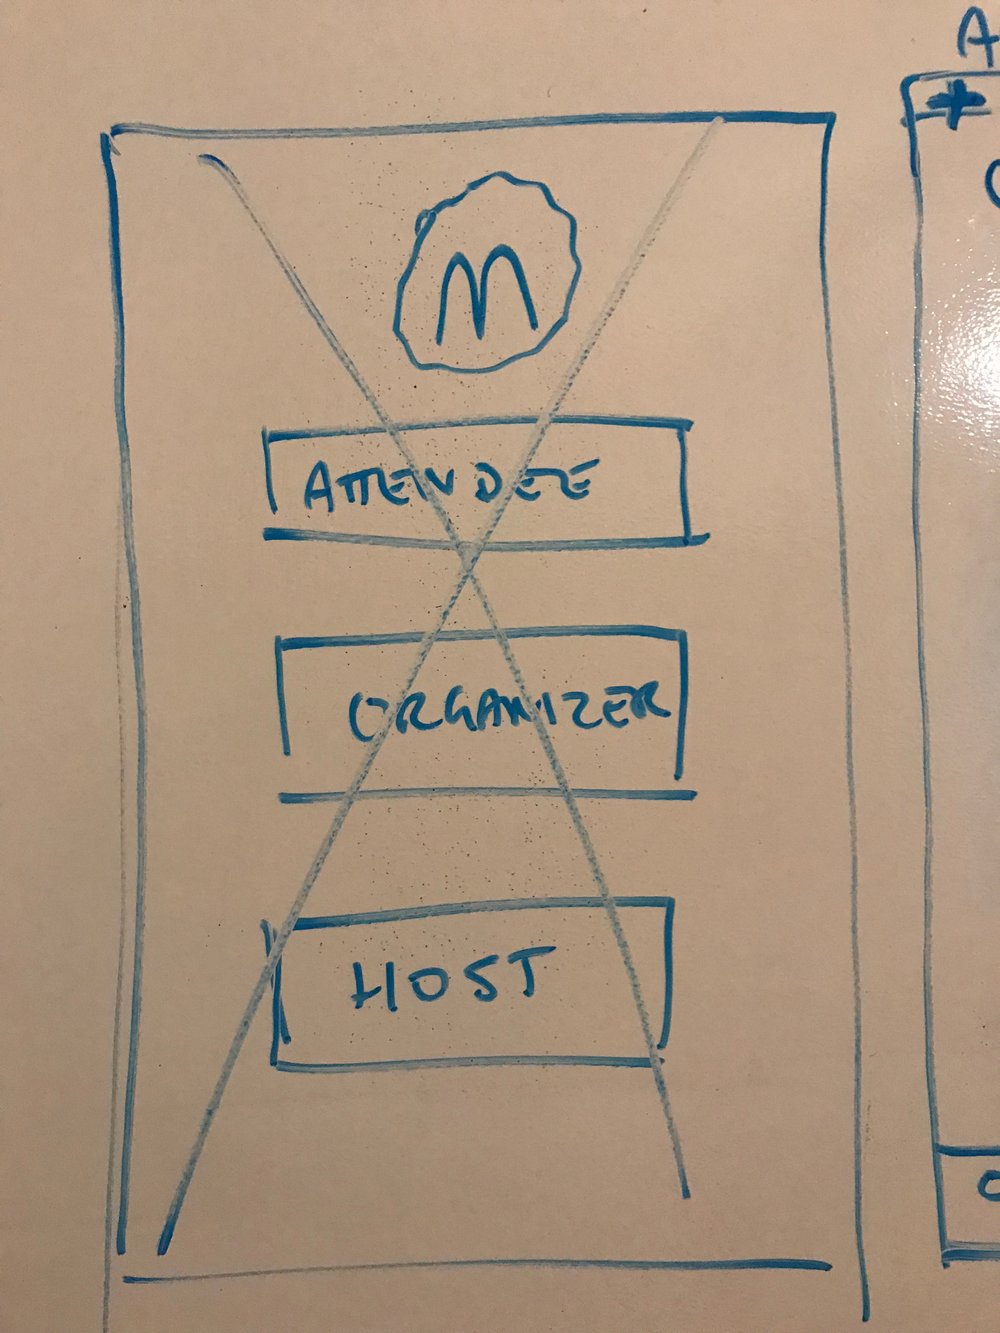 M
ATTENDEE
ORGANIZER
HOST
A